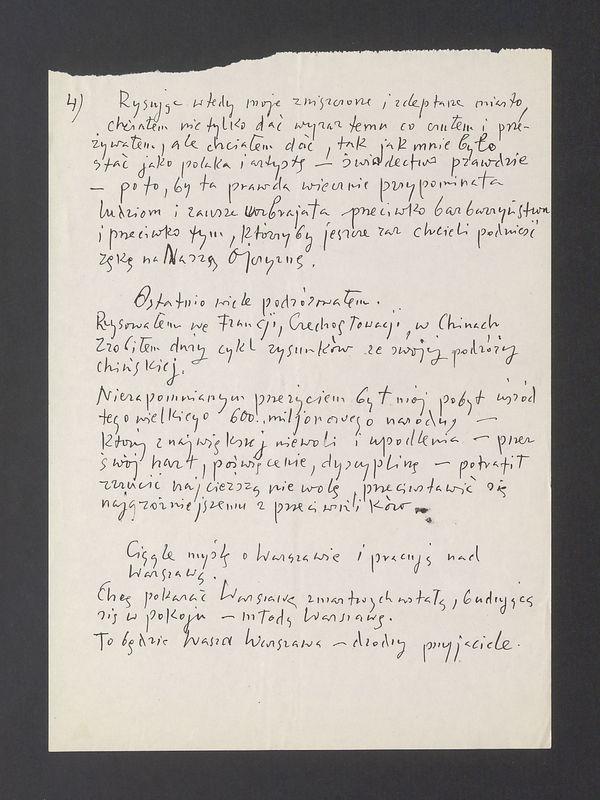 4) Rysując wtedy moje zniszczone i zdeptane miasto,
chciałem nie tylko dać wyraz temu co czułem i prze-
żywałem, ale chciałem dać, tak jak mnie było
stać jako polaka i artystę — świadectwo prawdzie
— po to, by ta prawda wiecznie przypominała
ludziom i zawsze uzbrajała przeciwko barbarzyństwu
i przeciwko tym, którzyby jeszcze raz chcieli podnieść
rękę na Naszą Ojczyznę.
Ostatnio wiele podróżowałem.
Rysowałem we Francji, Czechosłowacji, w Chinach
Zrobiłem duży cykl rysunków ze swojej podróży
chińskiej.
Niezapomnianym przeżyciem był mój pobyt wśród
tego wielkiego 600 miljonowego narodu, —
który z największej niewoli i upodlenia — przez
swój hart, poświęcenie, dyscyplinę — potrafił
zrzucić najcięższą niewolę, przeciwstawić się
najgroźniejszemu z przeciwników —
Ciągle myślę o Warszawie i pracuję nad
Warszawą.
Chcę pokazać Warszawę zmartwychwstałą, budującą
się w pokoju — młodą Warszawę.
To będzie Wasza Warszawa — drodzy przyjaciele.